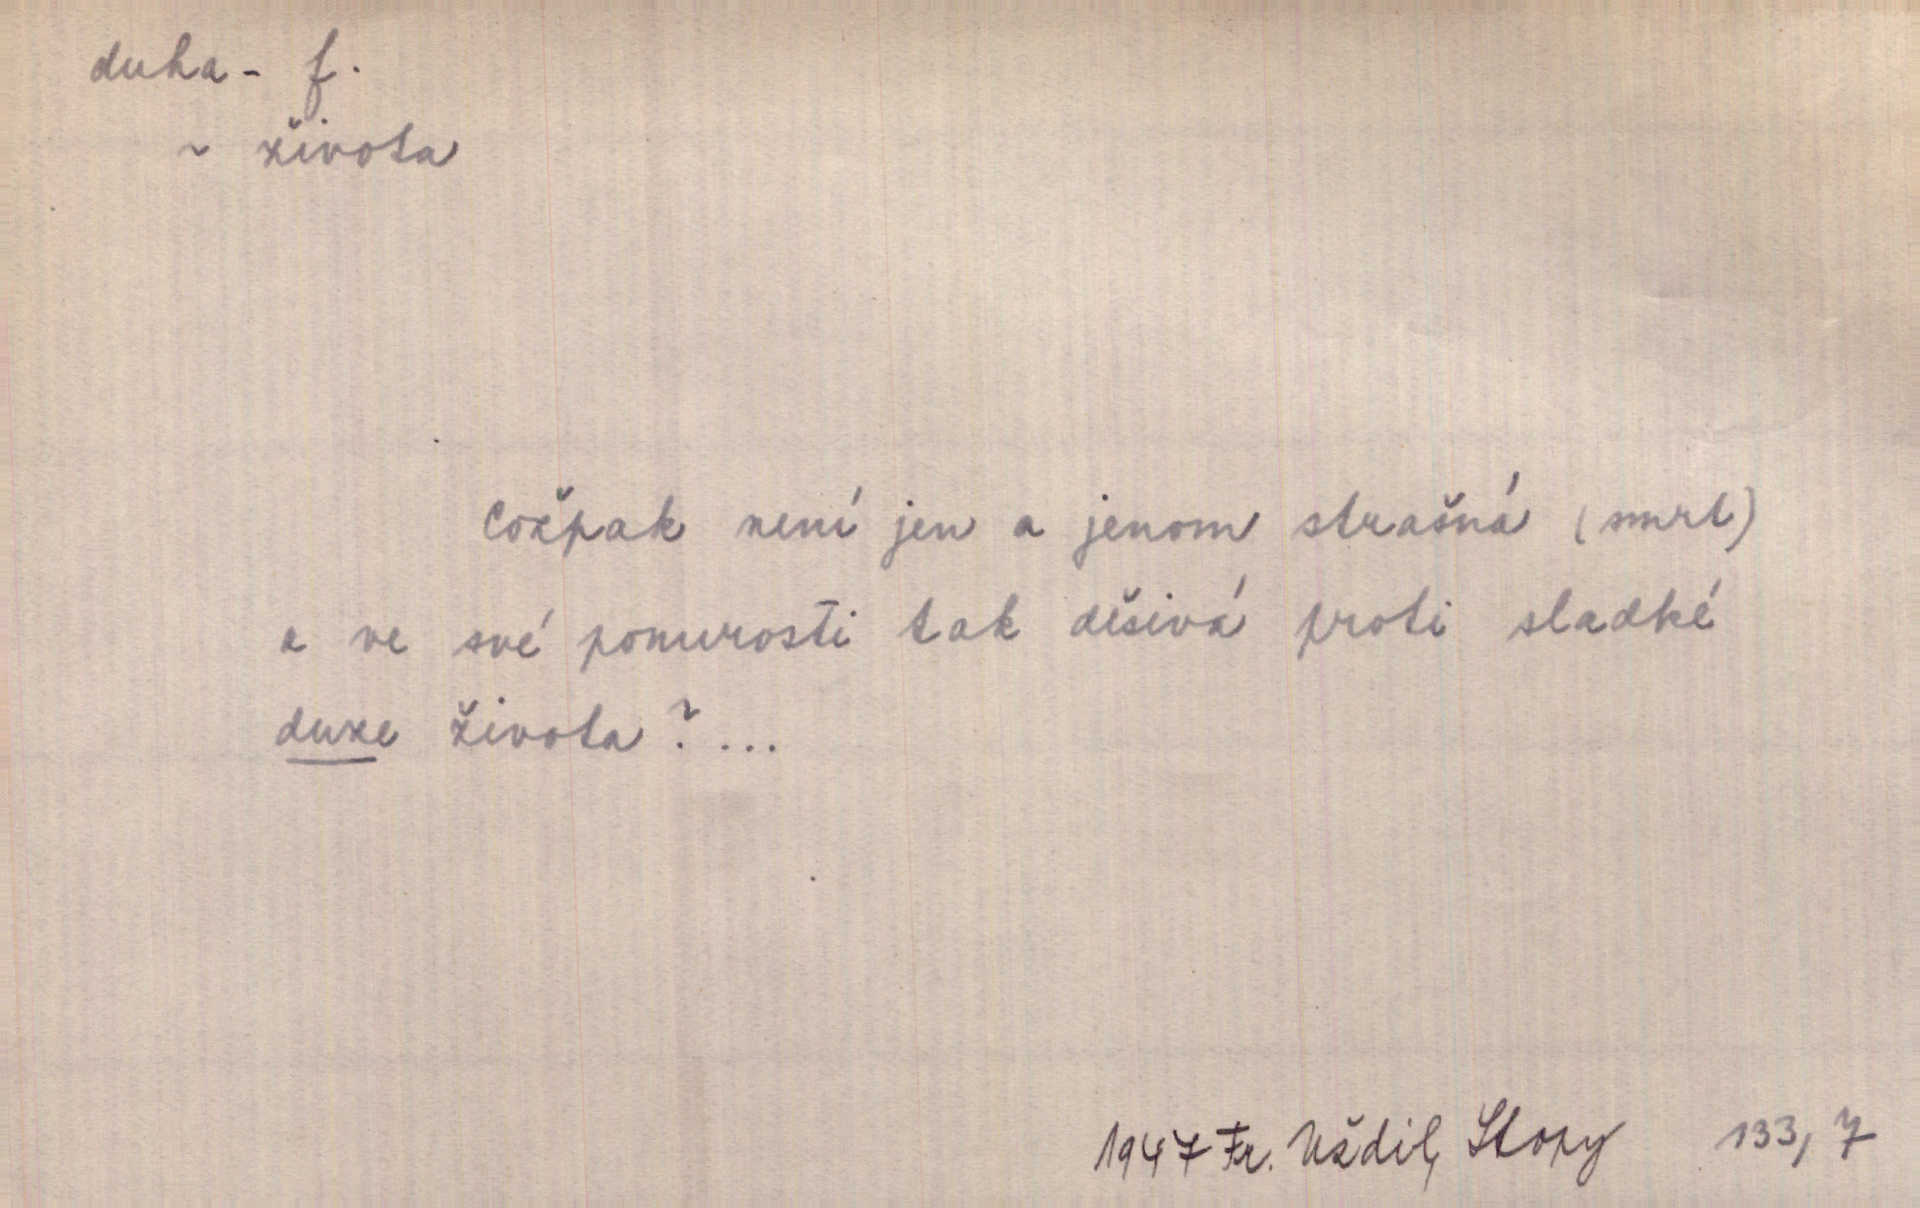 duha - f.
~ života
Cožpak není jen a jenom strašná (smrt)
a ve své ponurosti tak děsivá proti sladké
duze života? ...
1947 Fr. Uždil, Stopy 133, 7